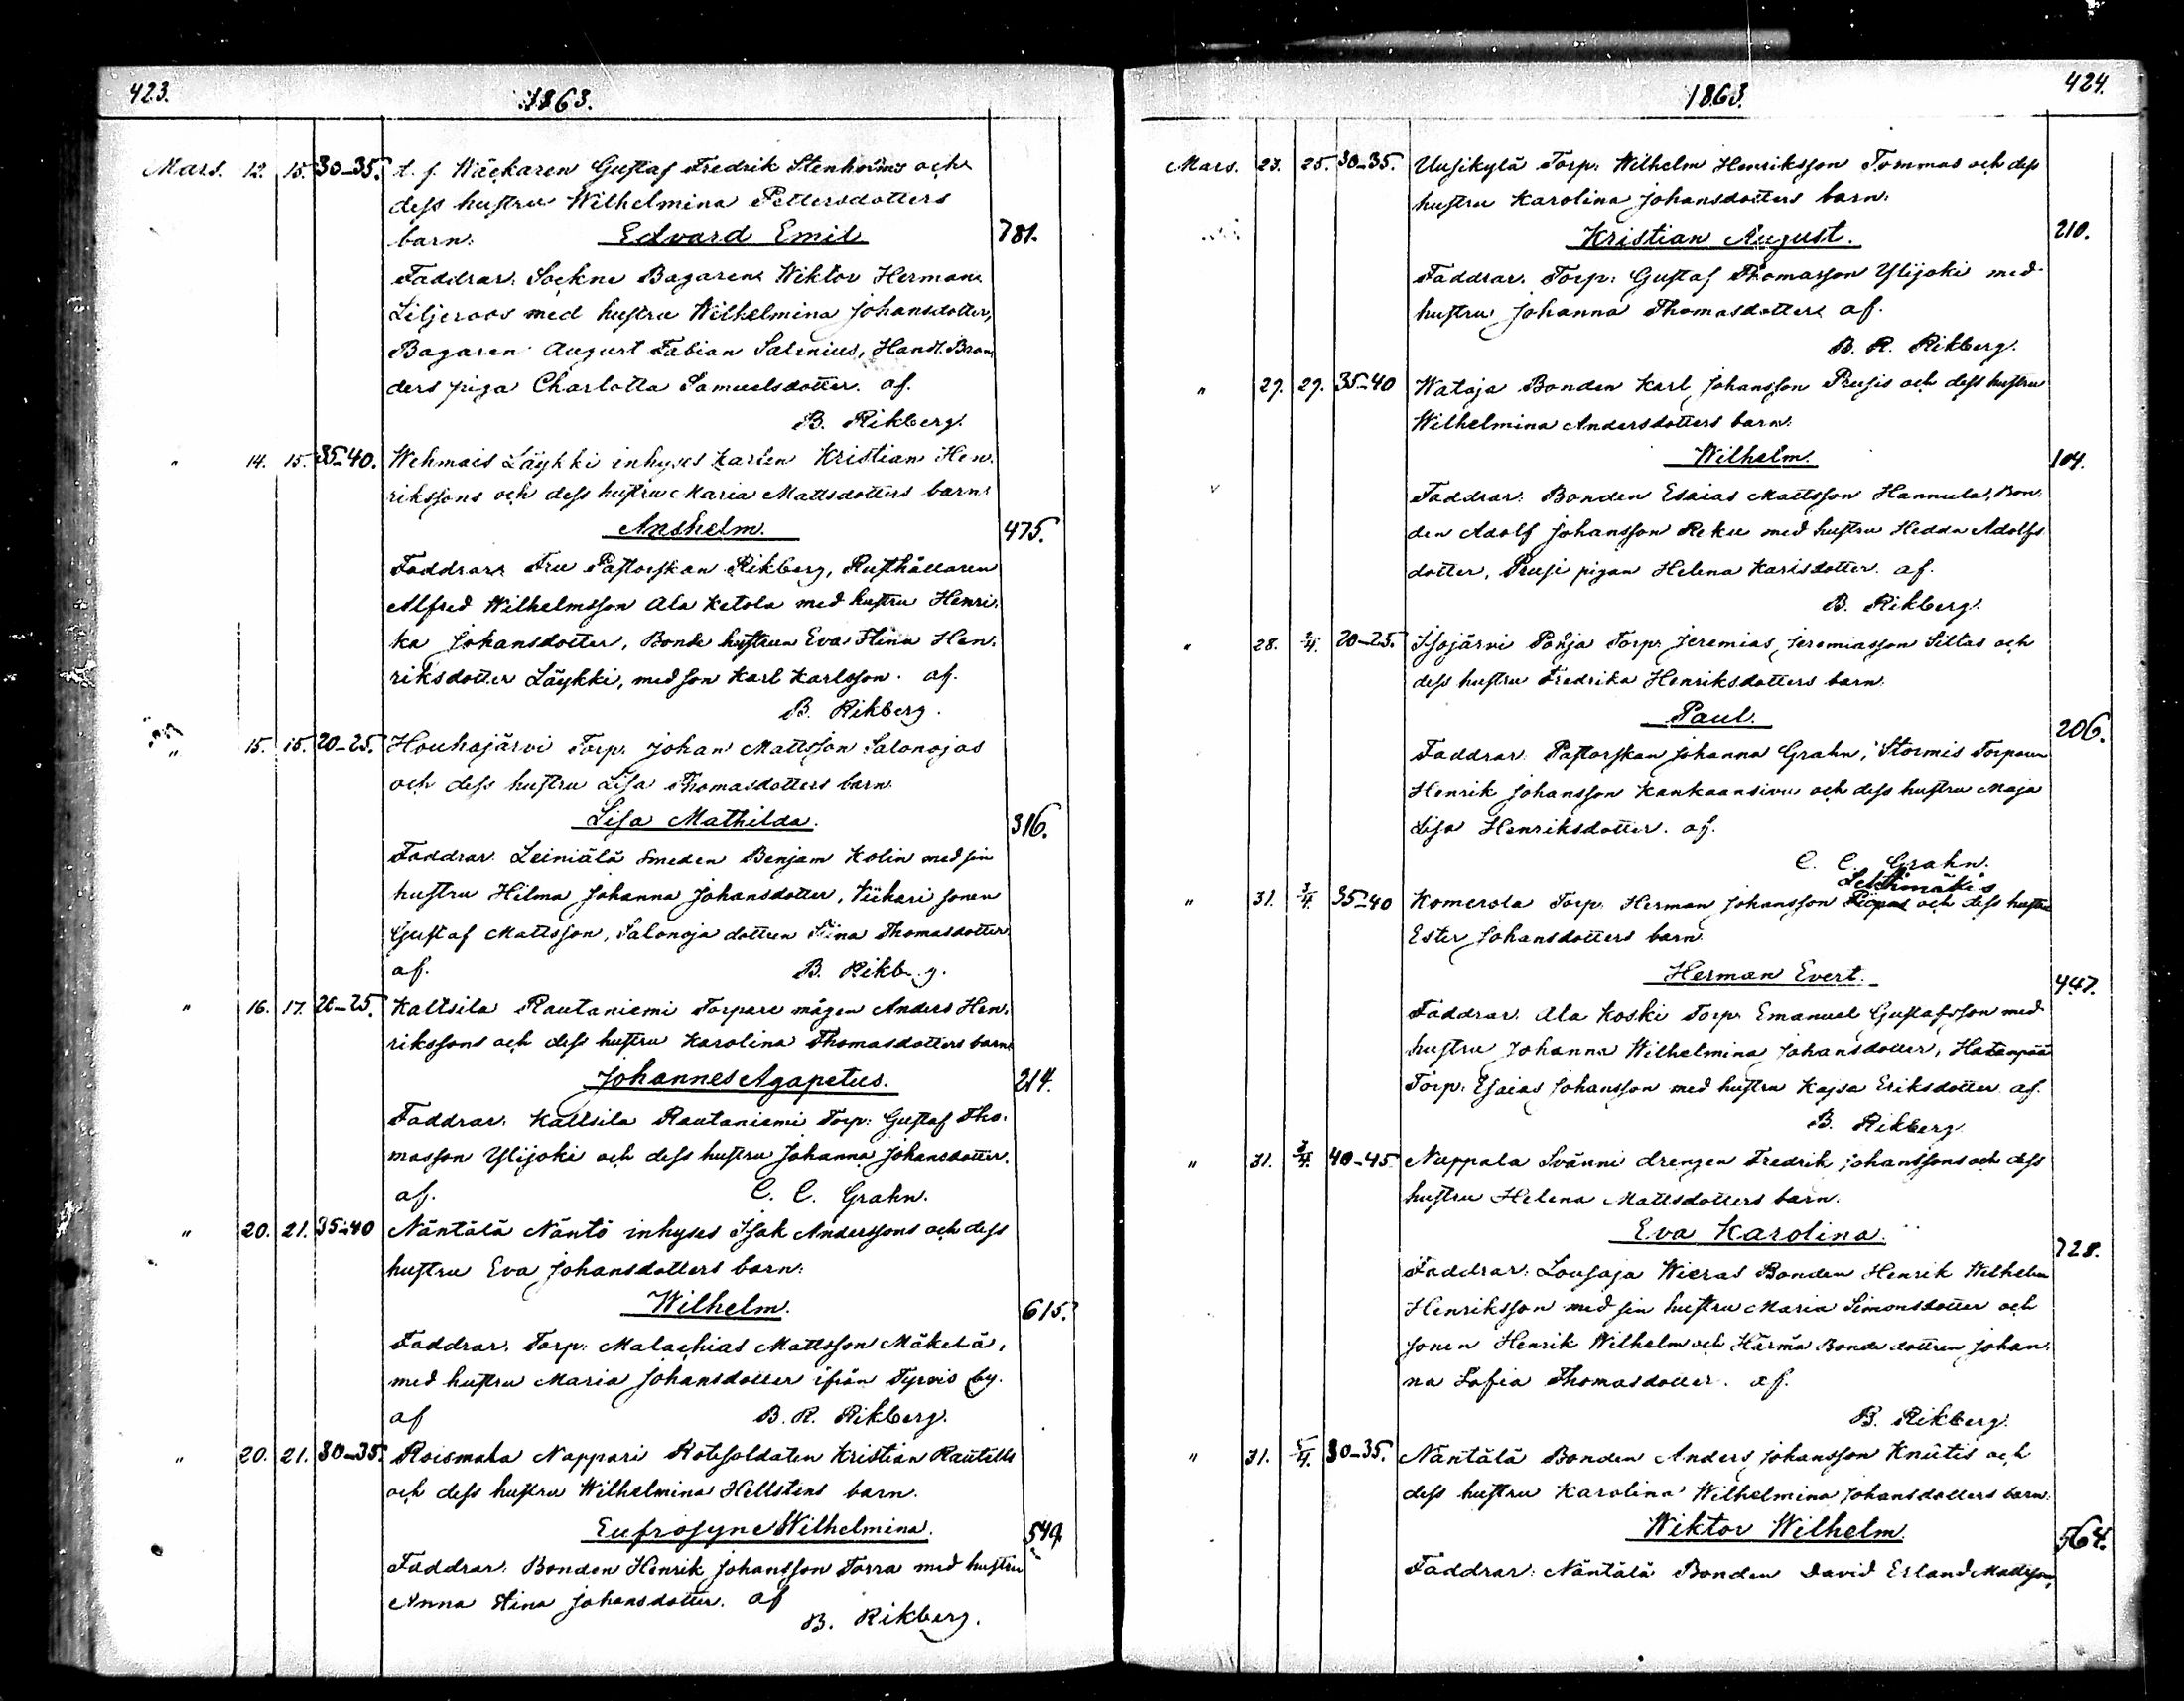 423.
1863.
Mars. 12. 15. 30-35. t. f. Wäckaren Gustaf Fredrik Stenholms och
dess hustru Wilhelmina Pettersdotters
barn: Edvard Emil 781.
Faddrar: Sockne Bagaren Wiktor Herman
Liljeroos med hustru Wilhelmina Johansdotter,
Bagaren August Fabian Salenius, Handl. Bran-
ders piga Charlotta Samuelsdotter. af.
B. Rikberg.
" 14. 15. 35-40. Wehmais Läykki inhyses Karlen Kristian Hen-
rikssons och dess hustru Maria Mattsdotters barn:
Anshelm. 475.
Faddrar: Fru Pastorskan Rikberg, Rusthållaren
Alfred Wilhelmsson Ala Ketola med hustru Henri-
ka Johansdotter, Bonde hustrun Eva Stina Hen-
riksdotter Läykki, med son Karl Karlsson. af.
B. Rikberg.
" 15. 15. 20-25. Houhajärvi Torp. Johan Mattsson Salonojas
och dess hustru Lisa Thomasdotters barn.
Lisa Mathilda. 316.
Faddrar: Leiniälä Smeden Benjam Kolin med sin
hustru Hilma Johanna Johansdotter, Wiikari sonen
Gustaf Mattsson, Salonoja dottren Stina Thomasdotter
af. B. Rikberg.
" 16. 17. 20-25. Kaltsila Rautaniemi Torpare mågen Anders Hen-
rikssons och dess hustru Karolina Thomasdotters barn
Johannes Agapetus. 214.
Faddrar: Kaltsila Rautaniemi Torp: Gustaf Tho-
masson Ylijoki och dess hustru Johanna Johansdotter.
af. C. C. Grahn.
" 20. 21. 35-40 Näntälä Näntö inhyses Isak Anderssons och dess
hustru Eva Johansdotters barn:
Wilhelm. 615.
Faddrar: Torp: Malachias Mattsson Mäkelä,
med hustru Maria Johansdotter ifrån Tyrvis by.
af B. R. Rikberg.
" 20. 21. 30-35. Roismala Nappari Rotesoldaten Kristian Rautells
och dess hustru Wilhelmina Hellstens barn.
Eufrosyne Wilhelmina. 549.
Faddrar: Bonden Henrik Johansson Torra med hustru
Anna Stina Johansdotter. af
B. Rikberg.
1863.
424.
Mars. 23. 25. 30-35. Uusikylä Torp: Wilhelm Henriksson Tommas och dess
hustru Karolina Johansdotters barn:
Kristian August. 210.
Faddrar: Torp: Gustaf Thomasson Ylijoki med
hustru Johanna Thomasdotter af.
B. R. Rikberg.
" 29. 29. 35-40 Wataja Bonden Karl Johansson Prusis och dess hustru
Wilhelmina Andersdotters barn.
Wilhelm. 104.
Faddrar: Bonden Esaias Mattsson Hannula, Bon-
den Adolf Johansson Reku med hustru Hedda Adolfs
dotter, Prusi pigan Helena Karlsdotter. af.
B. Rikberg.
" 28. 2/4. 20-25. Isojärvi Pohja Torp: Jeremias Jeremiasson Siltas och
dess hustru Fredrika Henriksdotters barn.
Paul. 206.
Faddrar: Pastorskan Johanna Grahn, Stormis Torparen
Henrik Johansson Kankaansivu och dess hustru Maja
Lisa Henriksdotter. af.
C. C. Grahn.
Lehtimäkis
" 31. 3/4. 35-40 Komerola Torp: Herman Johansson och dess hustru
Ester Johansdotters barn.
Herman Evert. 447.
Faddrar: Ala Koski Torp: Emanuel Gustafsson med
hustru Johanna Wilhelmina Johansdotter, Hatanpää
Torp: Esaias Johansson med hustru Kajsa Eriksdotter. af.
B. Rikberg.
" 31. 3/4. 40-45 Nuppala Svänni drengen Fredrik Johanssons och dess
hustru Helena Mattsdotters barn.
Eva Karolina. 728.
Faddrar: Lousaja Wieras Bonden Henrik Wilhelm
Henriksson med sin hustru Maria Simonsdotter och
sonen Henrik Wilhelm och Härmä Bonde dottren Johan-
na Sofia Thomasdotter. af.
B. Rikberg.
" 31. 5/4. 30-35. Näntälä Bonden Anders Johansson Knutis och
dess hustru Karolina Wilhelmina Johansdotters barn:
Wiktor Wilhelm. 564.
Faddrar: Näntälä Bonden David Erland Mattsson,